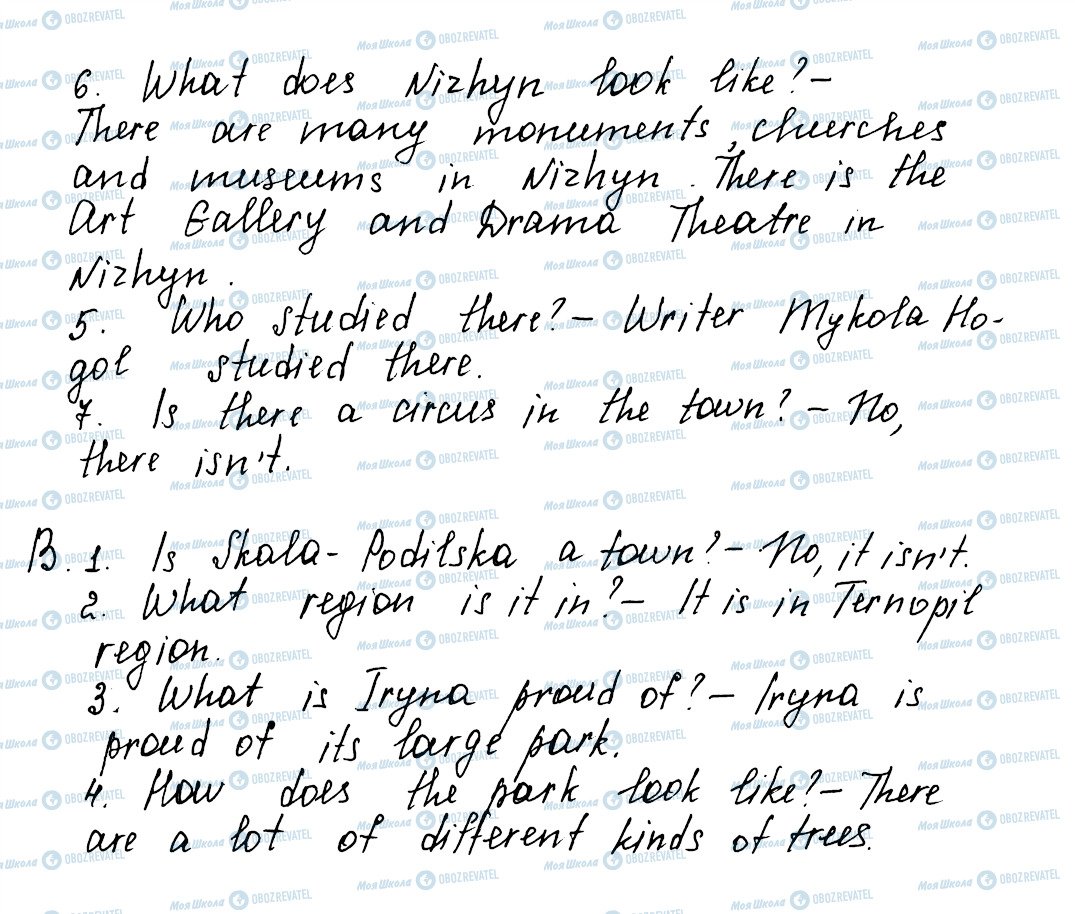 6. What does Nizhyn look like? –
There are many monuments, churches
and museums in Nizhyn. There is the
Art Gallery and Drama Theatre in
Nizhyn.
5. Who studied there? – Writer Mykola Ho-
gol studied there.
7. Is there a circus in the town? – No,
there isn't.
B. 1. Is Skala-Podilska a town? – No, it isn't.
2. What region is it in? – It is in Ternopil
region.
3. What is Iryna proud of? – Iryna is
proud of its large park.
4. How does the park look like? – There
are a lot of different kinds of trees.
Моя Школа OBOZREVATEL